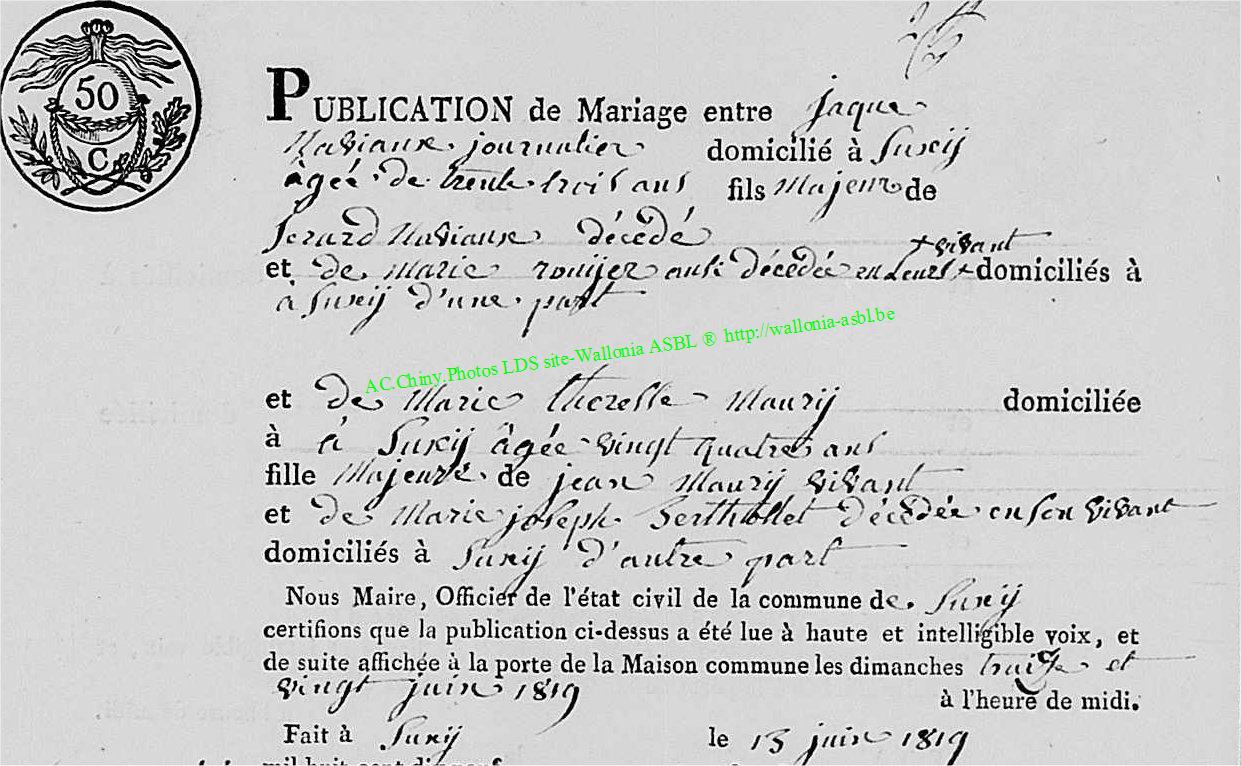 50
C
PUBLICATION de Mariage entre jaque
Naviaux journalier domicilié à Suxij
âgéé de trente trois ans fils Majeur de
Jerard Naviaux décédé
et de marie rouijer ausi décédée en Leurs + domiciliés à
+ vivant
à Suxij d'une part
AC.Chiny.Photos LDS site-Wallonia ASBL ® http://wallonia-asbl.be
et de Marie theresse Maurij domiciliée
à à Suxij âgée vingt quatre ans
fille Majeure de jean Maurij vivant
et de Marie joseph Berthollet décédée en son vivant
domiciliés à Suxij d'autre part
Nous Maire, Officier de l'état civil de la commune de Suxij
certifions que la publication ci-dessus a été lue à haute et intelligible voix, et
de suite affichée à la porte de la Maison commune les dimanches traize et
vingt juin 1819 à l'heure de midi.
Fait à Suxij le 13 juin 1819